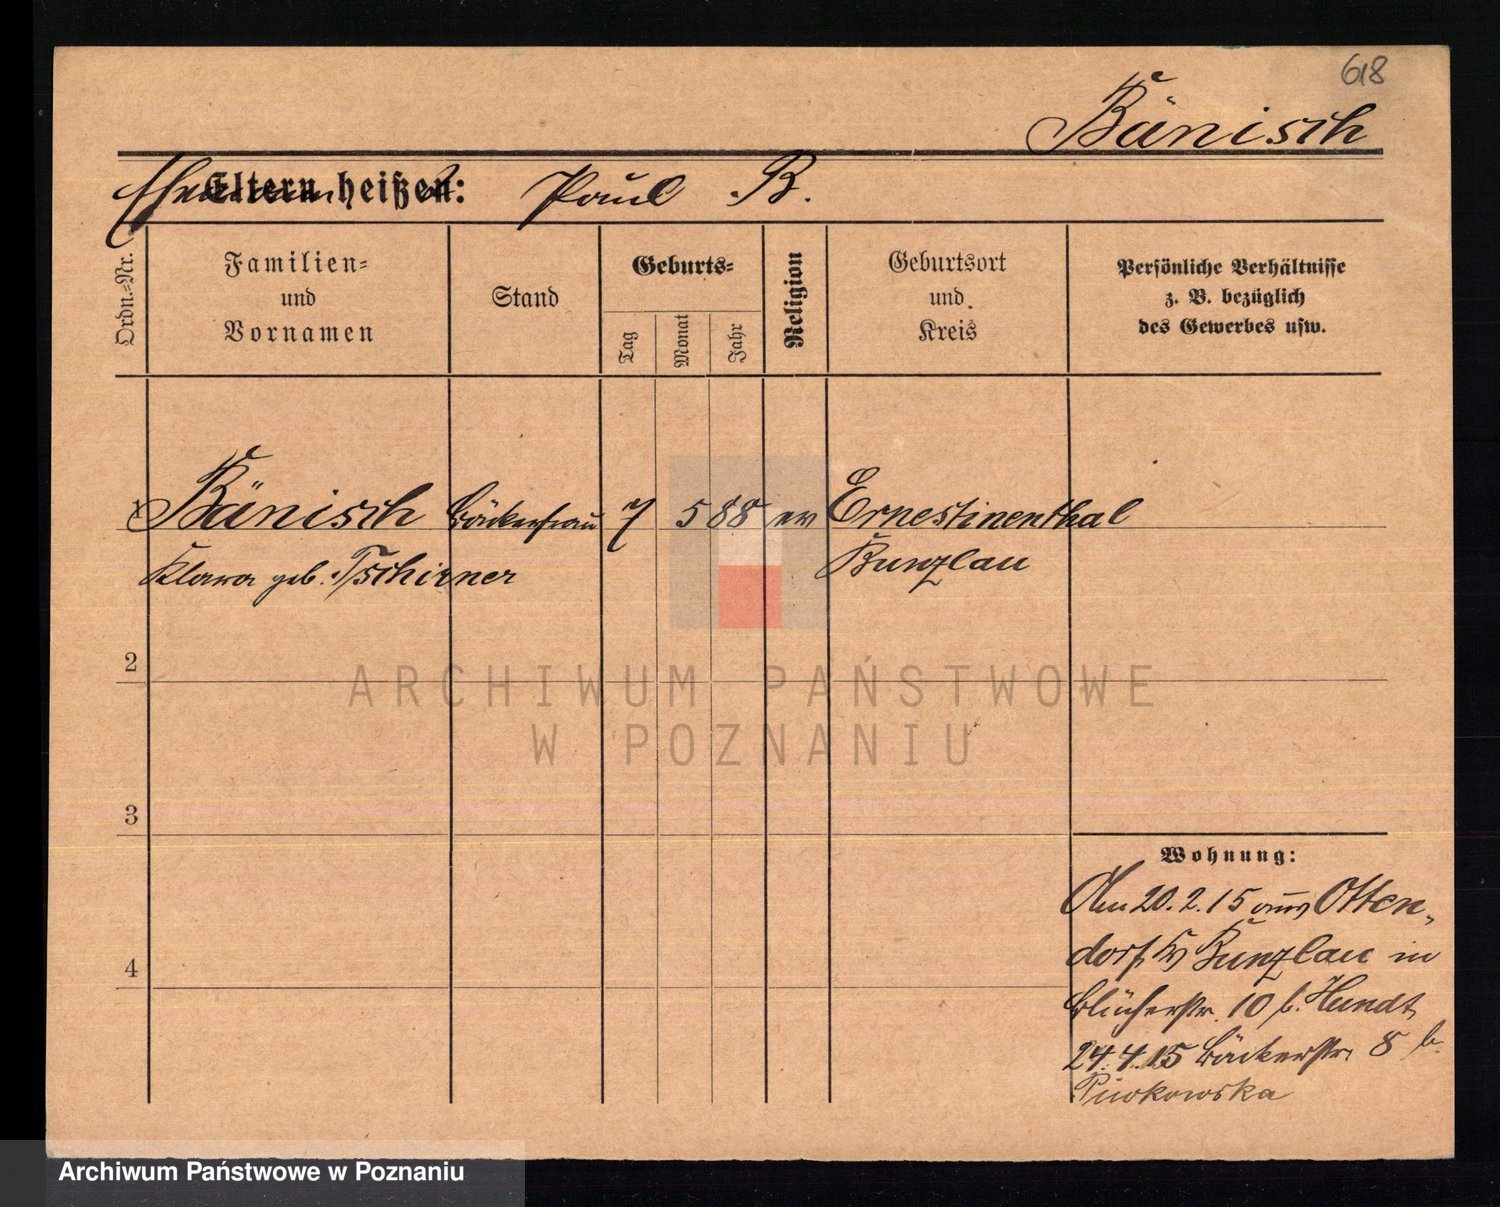 618
Bänisch
Ehemann Eltern heißen: Paul B.
Ordn.=Nr.
Familien=
und
Vornamen
Stand
Geburts=
Tag
Monat
Jahr
Religion
Geburtsort
und
Kreis
Persönliche Verhältnisse
z. B. bezüglich
des Gewerbes usw.
1 Bänisch Bäckerfrau 7 5 88 ev Ernestinenthal
Klara geb. Tschirner Bunzlau
2
ARCHIWUM PAŃSTWOWE
W POZNANIU
3
Wohnung:
Am 20.2.15 aus Otten-
dorf Kr Bunzlau in
4
Blücherstr. 10 b. Hundt
24.4.15 Bäckerstr. 8 b.
Archiwum Państwowe w Poznaniu